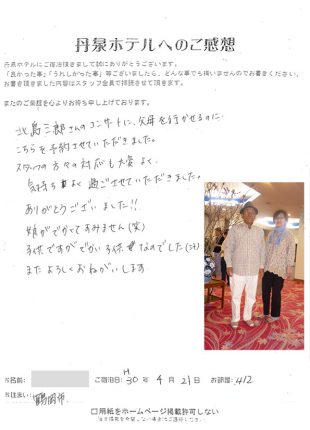 丹泉ホテルへのご感想
丹泉ホテルにご宿泊頂きまして誠にありがとうございます。
「良かった事」「うれしかった事」等ございましたら、どんな事でも構いませんのでお書きください。
お書き頂きました内容はスタッフ全員で拝読させて頂きます。
またのご来館を心よりお待ち申し上げております。
北島三郎さんのコンサートに、父母を行かせるのに
こちらを予約させていただきました。
スタッフの方々の対応も大変よく、
気持ちよく過ごさせていただきました。
ありがとうございました!!
態がでかくてすみません(笑)
子供ですがでかい子供なのでした(汗)
またよろしくおねがいします
お名前:
ご宿泊日: H30年 4月 21日
お部屋: 412
お住まい: 鶴岡市
□用紙をホームページ掲載許可しない